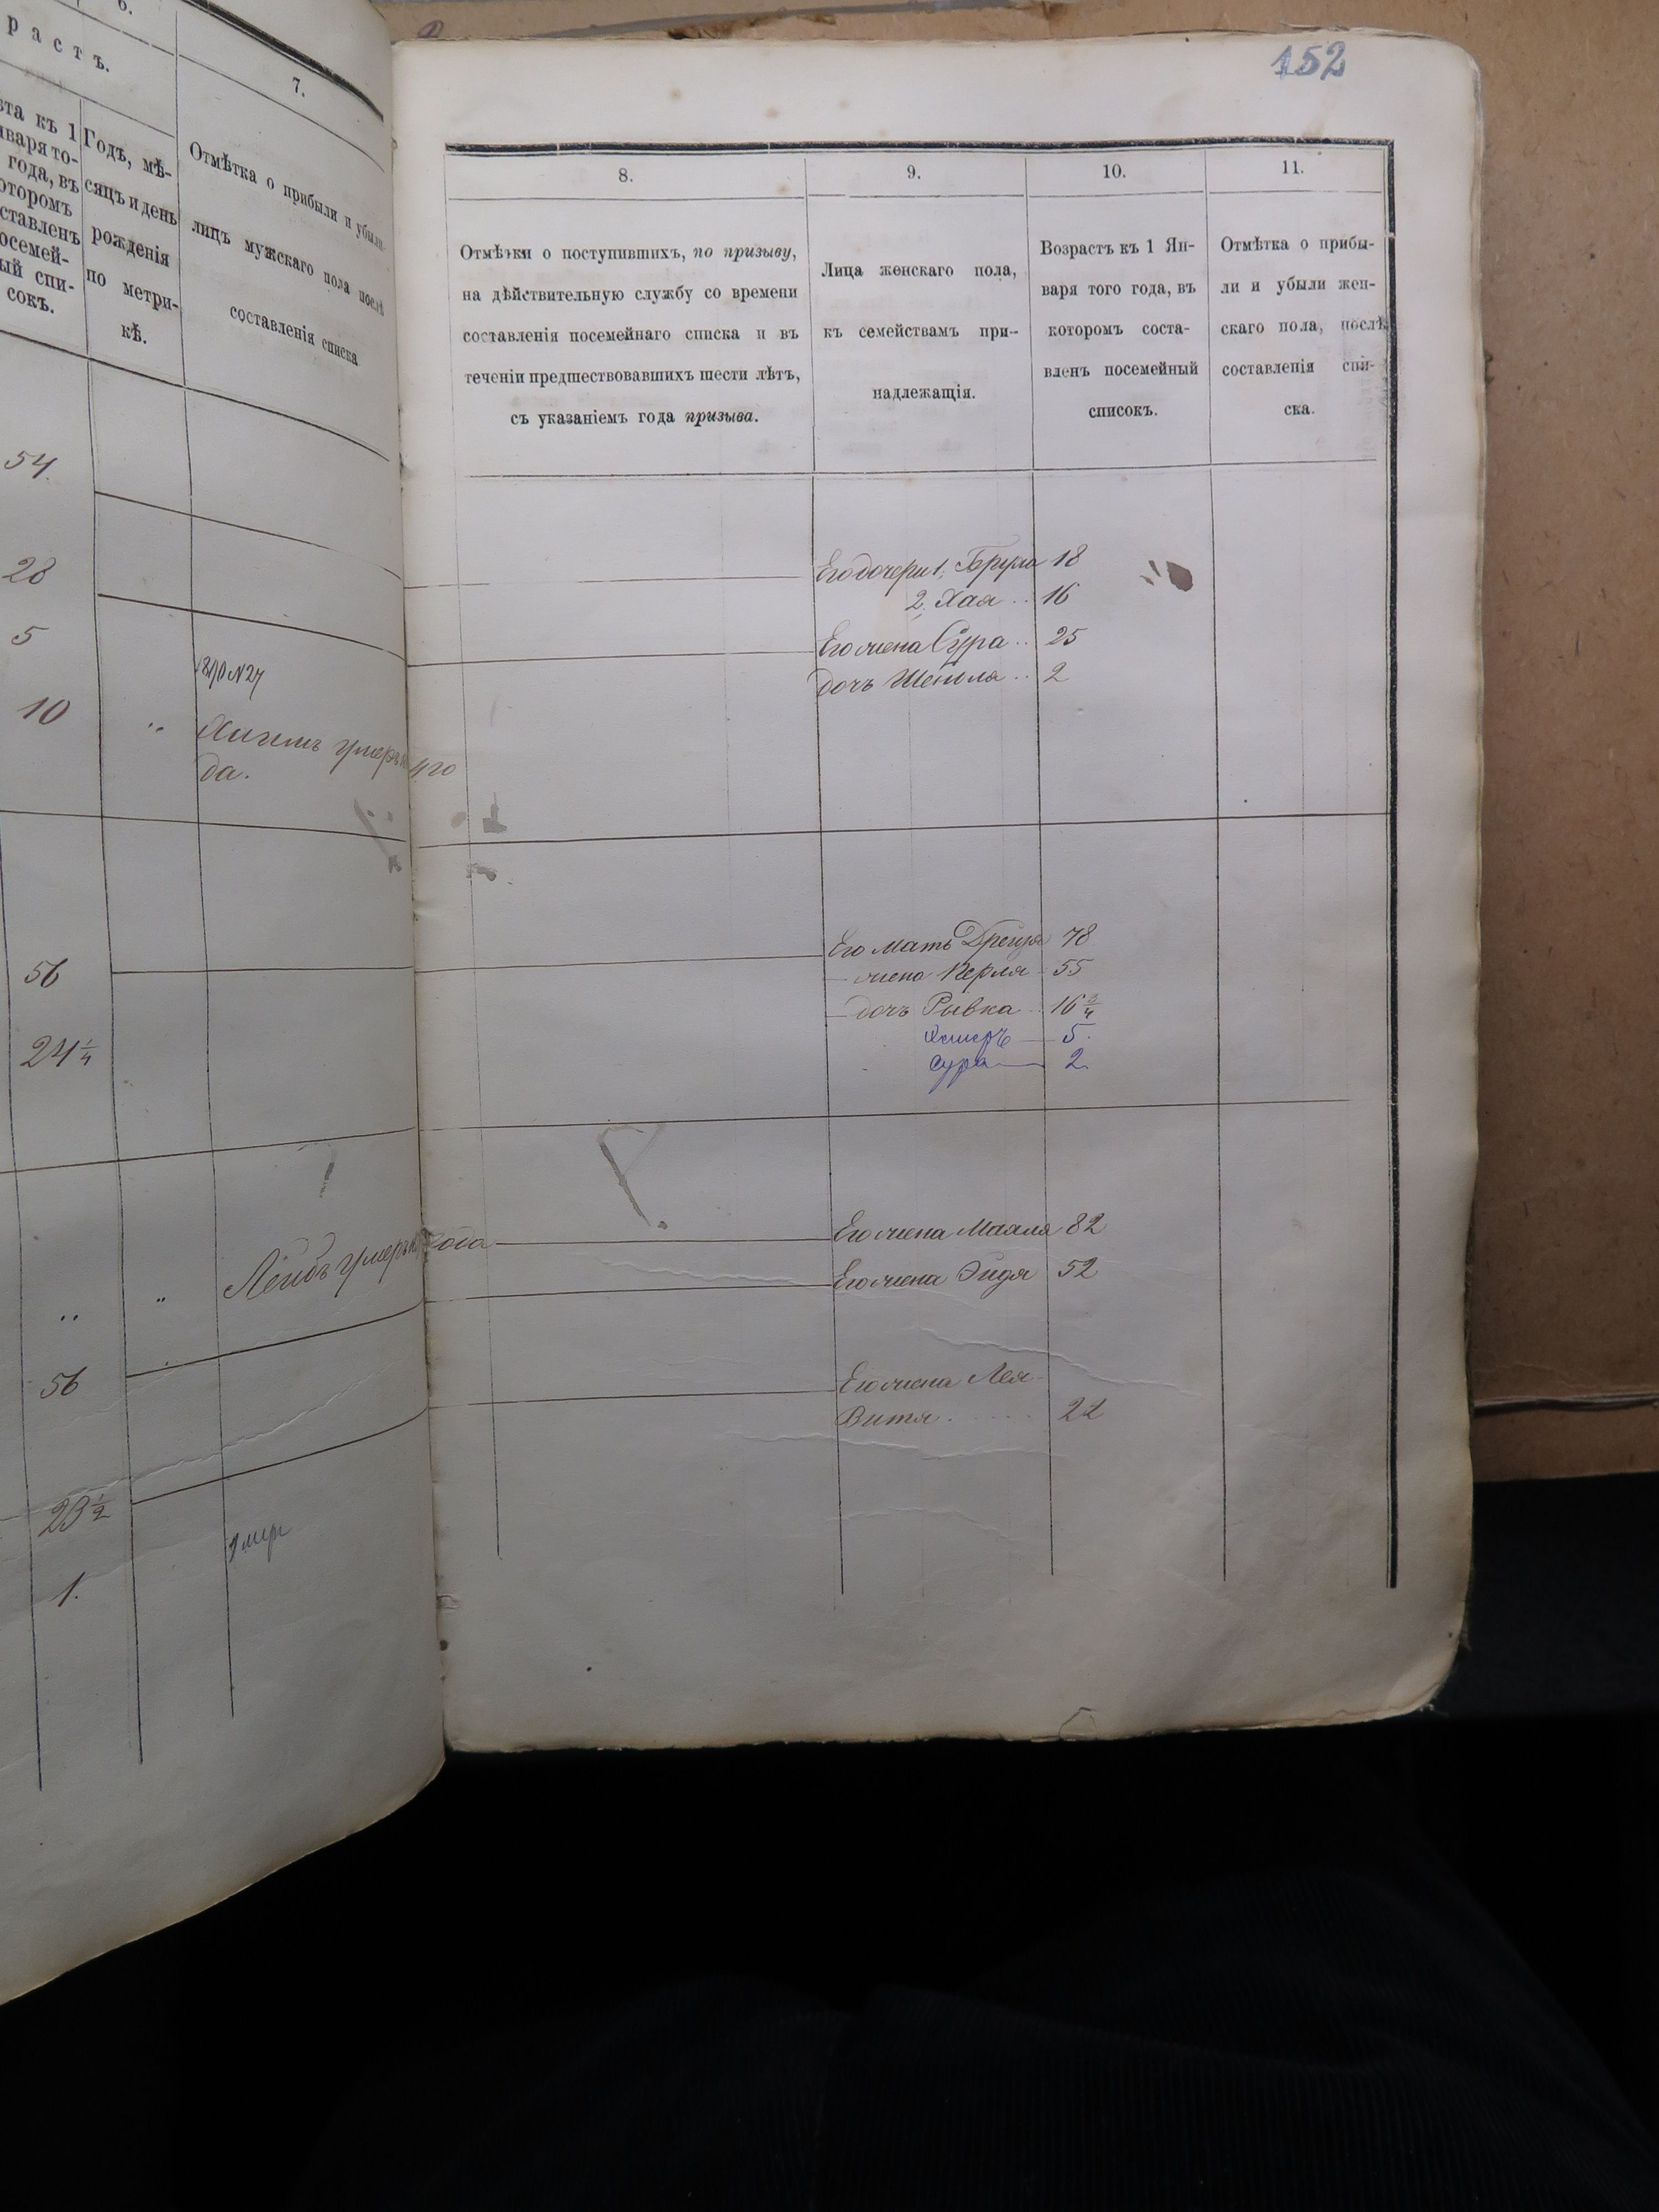 6.
растъ.
7.
та къ 1
нваря то-
года, въ
оторомъ
ставленъ
осемей-
ый спи-
сокъ.
Годъ, мѣ-
сяцъ и день
рожденія
по метри-
кѣ.
Отмѣтка о прибыли и убыли
лицъ мужскаго пола послѣ
составленія списка
54.
28
5
10
"
да.
56
24 1/4
Лейбъ умеръ года
"
"
56
23 1/2
1.
152
8.
9.
10.
11.
Отмѣтки о поступившихъ, по призыву,
на дѣйствительную службу со времени
составленія посемейнаго списка и въ
теченіи предшествовавшихъ шести лѣтъ,
съ указаніемъ года призыва.
Лица женскаго пола,
къ семействамъ при-
надлежащія.
Возрастъ къ 1 Ян-
варя того года, въ
которомъ соста-
вленъ посемейный
списокъ.
Отмѣтка о прибы-
ли и убыли жен-
скаго пола, послѣ
составленія спи-
ска.
Его дочери 1, 18
2. Хая .. 16
Его жена Сура .. 25
дочь .. 2
Его мать Дрейзя 78
— жена Перля 55
— дочь Рывка .. 16 3/4
Эстеръ — 5.
Сура — 2.
Его жена 82
Его жена Эйдя 52
Его жена Лея-
Витя ..... 22